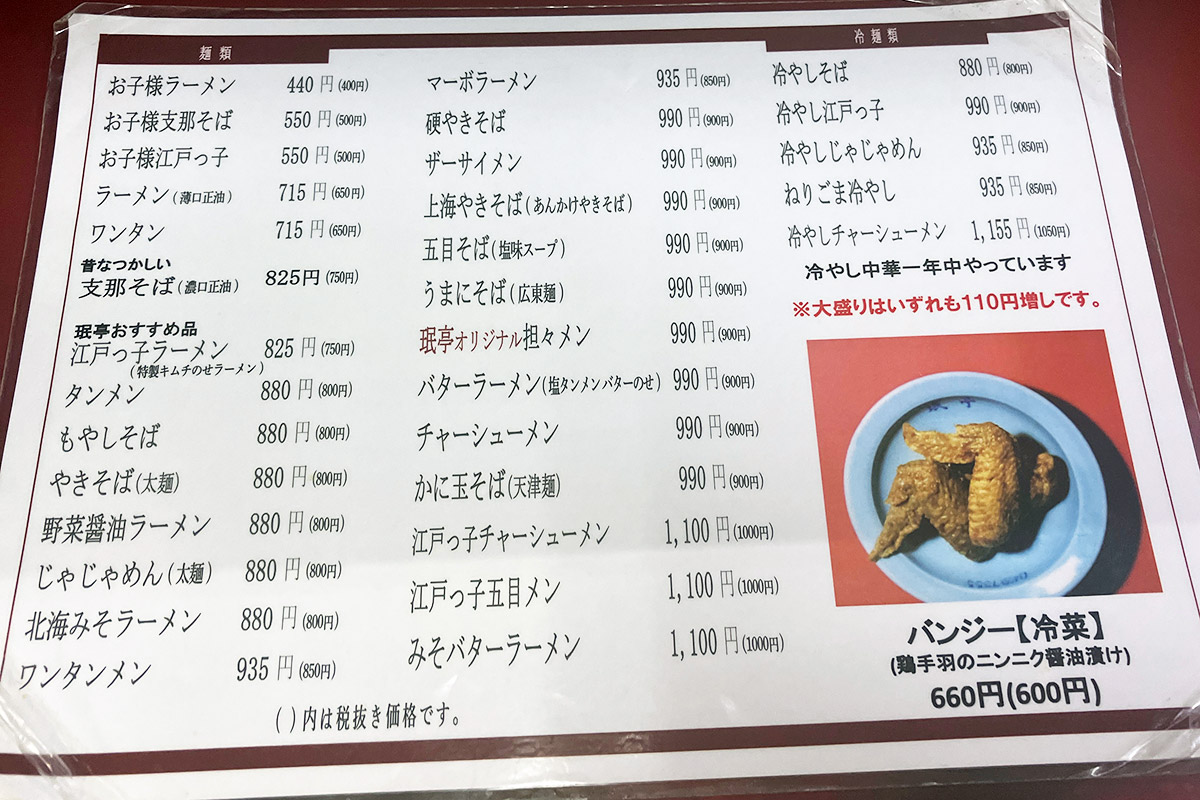 麺類
お子様ラーメン 440円(400円)
お子様支那そば 550円(500円)
お子様江戸っ子 550円(500円)
ラーメン(薄口正油) 715円(650円)
ワンタン 715円(650円)
昔なつかしい
支那そば(濃口正油) 825円(750円)
珉亭おすすめ品
江戸っ子ラーメン 825円(750円)
(特製キムチのせラーメン)
タンメン 880円(800円)
もやしそば 880円(800円)
やきそば(太麺) 880円(800円)
野菜醤油ラーメン 880円(800円)
じゃじゃめん(太麺) 880円(800円)
北海みそラーメン 880円(800円)
ワンタンメン 935円(850円)
マーボラーメン 935円(850円)
硬やきそば 990円(900円)
ザーサイメン 990円(900円)
上海やきそば(あんかけやきそば) 990円(900円)
五目そば(塩味スープ) 990円(900円)
うまにそば(広東麺) 990円(900円)
珉亭オリジナル担々メン 990円(900円)
バターラーメン(塩タンメンバターのせ) 990円(900円)
チャーシューメン 990円(900円)
かに玉そば(天津麺) 990円(900円)
江戸っ子チャーシューメン 1,100円(1000円)
江戸っ子五目メン 1,100円(1000円)
みそバターラーメン 1,100円(1000円)
( )内は税抜き価格です。
冷麺類
冷やしそば 880円(800円)
冷やし江戸っ子 990円(900円)
冷やしじゃじゃめん 935円(850円)
ねりごま冷やし 935円(850円)
冷やしチャーシューメン 1,155円(1050円)
冷やし中華一年中やっています
※大盛りはいずれも110円増しです。
珉亭
バンジー【冷菜】
(鶏手羽のニンニク醤油漬け)
660円(600円)